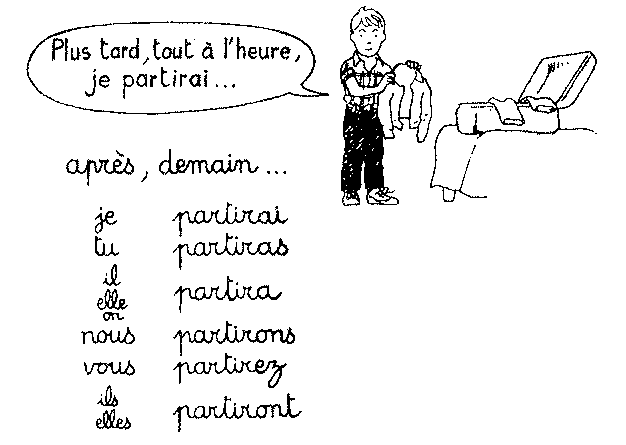 Plus tard, tout à l'heure,
je partirai...
après, demain...
je partirai
tu partiras
il
elle partira
on
nous partirons
vous partirez
ils
elles partiront